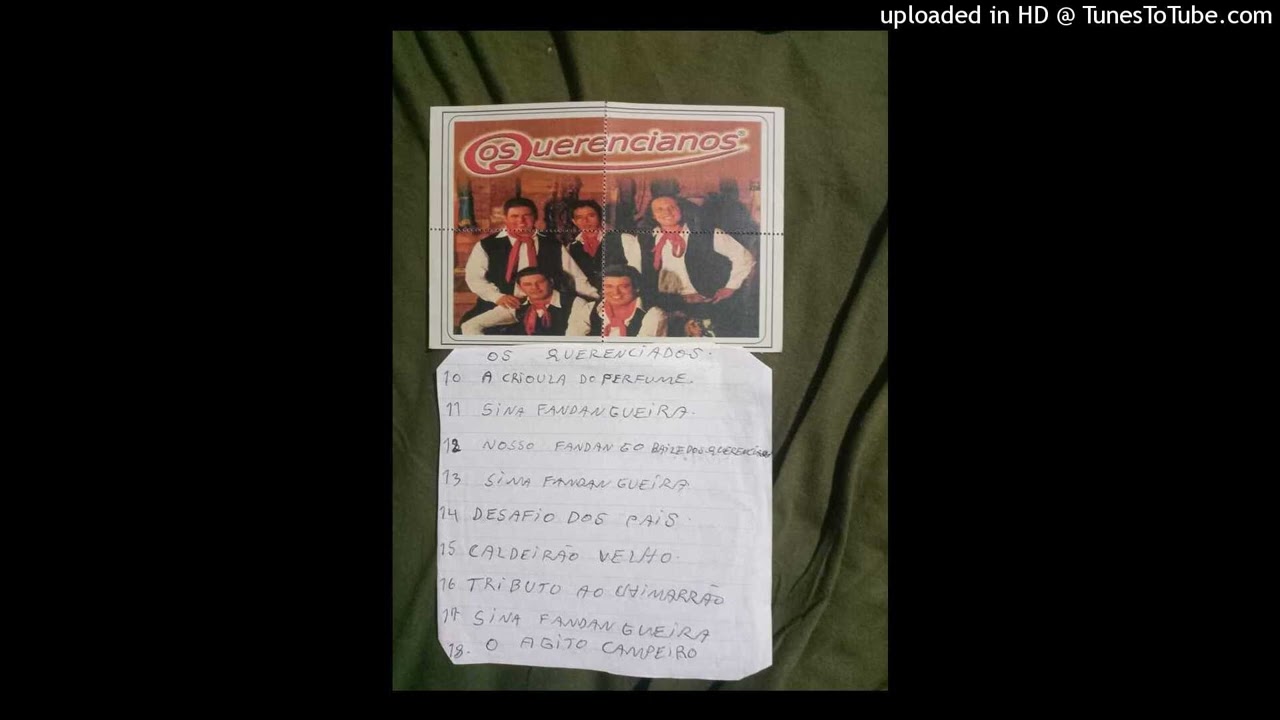 uploaded in HD @ TunesToTube.com
os Querencianos
OS QUERENCIADOS.
10 A CRIOULA DO PERFUME.
11 SINA FANDANGUEIRA.
12 NOSSO FANDANGO BAILE DOS
13 SINA FANDANGUEIRA
14 DESAFIO DOS PAIS.
15 CALDEIRÃO VELHO.
16 TRIBUTO AO CHIMARRÃO
17 SINA FANDANGUEIRA
18. O AGITO CAMPEIRO